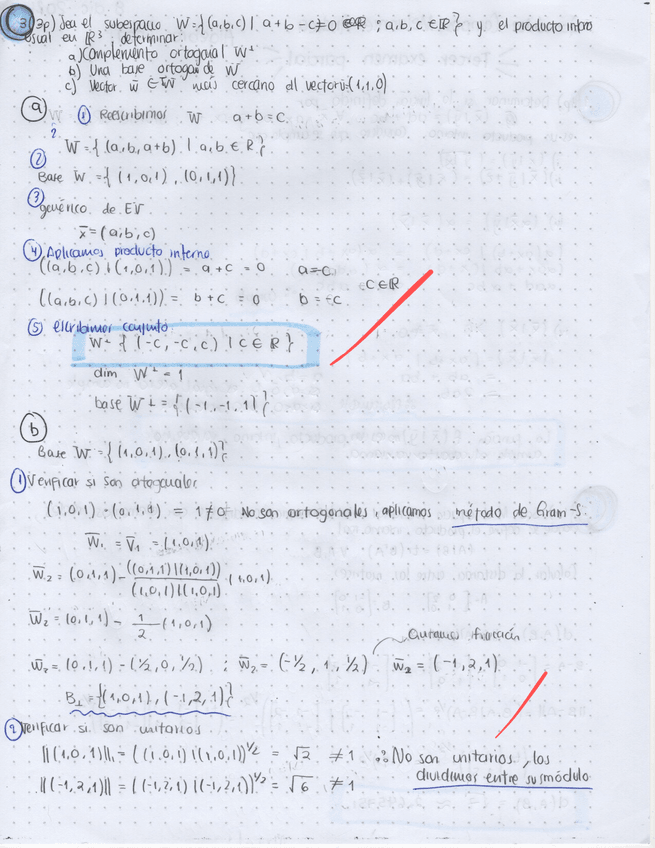 3) (3p) Sea el subespacio W={(a,b,c) | a+b-c=0 ; a,b,c ∈ℝ} y el producto inpro
usual en ℝ³, determinar:
a) Complemento ortogonal W⊥
b) Una base ortogonal de W
c) Vector w̄ ∈ W más cercano al vector ū=(1,1,0)
a) ① Reescribimos W a+b=c
W={(a,b,a+b) | a,b ∈ ℝ}
②
Base W = {(1,0,1), (0,1,1)}
③
genérico de EV
x̄=(a,b,c)
④ Aplicamos producto interno
((a,b,c) | (1,0,1)) = a+c = 0 a=-c
c∈ℝ
((a,b,c) | (0,1,1)) = b+c = 0 b=-c
⑤ escribimos conjunto
W⊥ {(-c,-c,c) | c∈ ℝ}
dim W⊥ = 1
base W⊥ = {(-1,-1,1)}
b)
Base W = {(1,0,1), (0,1,1)}
① Verificar si son ortogonales
(1,0,1)·(0,1,1) = 1≠0 No son ortogonales, aplicamos método de Gram-S.
W̄₁ = V̄₁ = (1,0,1)
W̄₂ = (0,1,1) - ((0,1,1)|(1,0,1))/(1,0,1)|(1,0,1) (1,0,1)
W̄₂ = (0,1,1) - 1/2 (1,0,1)
Quitamos fracción
W̄₂ = (0,1,1) - (1/2, 0, 1/2) ; W̄₂ = (-1/2, 1, 1/2) W̄₂ = (-1,2,1)
B⊥ = {(1,0,1), (-1,2,1)}
② Verificar si son unitarios
||(1,0,1)|| = ((1,0,1)|(1,0,1))^1/2 = √2 ≠1 ∴ No son unitarios, los
dividimos entre su módulo
||(-1,2,1)|| = ((-1,2,1)|(-1,2,1))^1/2 = √6 ≠1